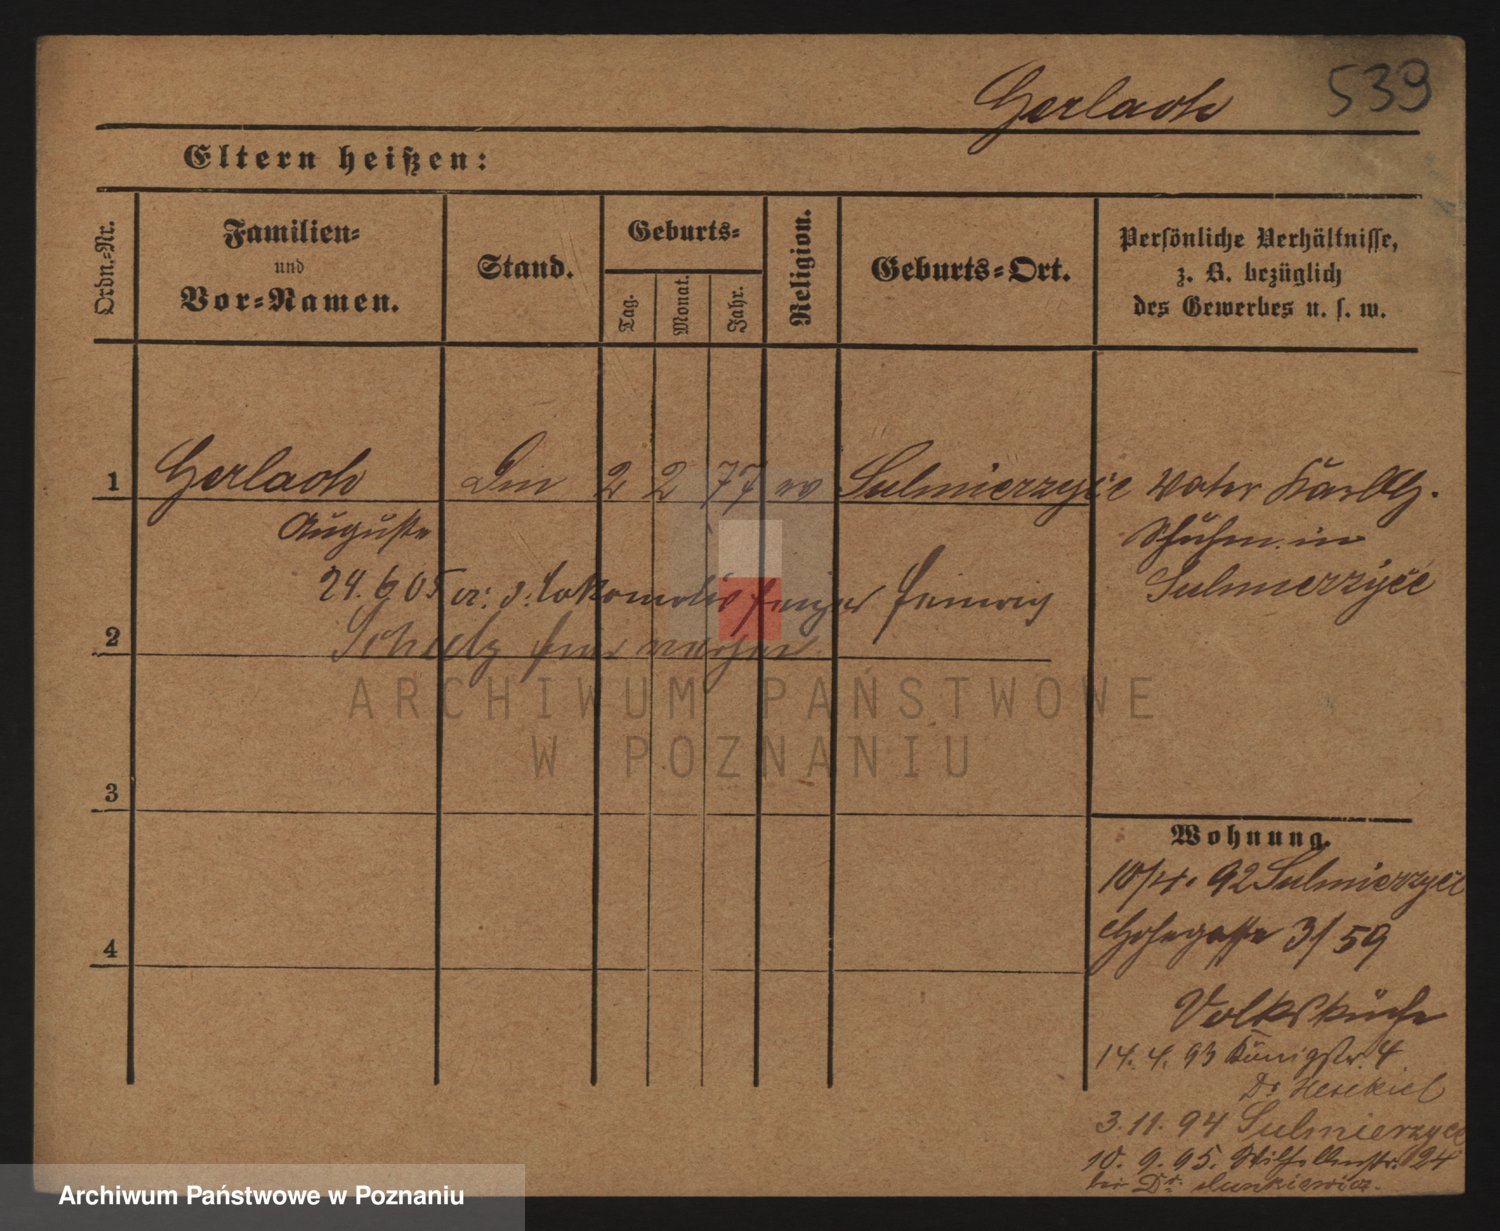 Gerlach 539
Eltern heißen:
Ordn.-Nr.
Familien-
und
Vor-Namen.
Stand.
Geburts-
Tag.
Monat.
Jahr.
Religion.
Geburts-Ort.
Persönliche Verhältnisse,
z. B. bezüglich
des Gewerbes u. s. w.
1 Gerlach Din 2 2 77 ev Sulmierzyce Vater Karl G.
Auguste
Schuhm. in
Sulmierzyce
24.6.05 Lokomotivheizer Heinrich
2 Schulz
3
4
Wohnung.
10/4. 92 Sulmierzyce
Hohegasse 3/59
Volksküche
14.4.93 Königstr. 4
Dr Hesekiel
3.11.94 Sulmierzyce
10.9.95. Wilhelmstr. 24
bei Dr.
ARCHIWUM PAŃSTWOWE
W POZNANIU
Archiwum Państwowe w Poznaniu